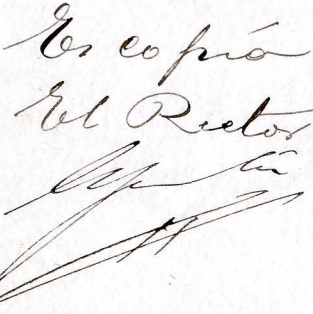 Es copia
El Rector